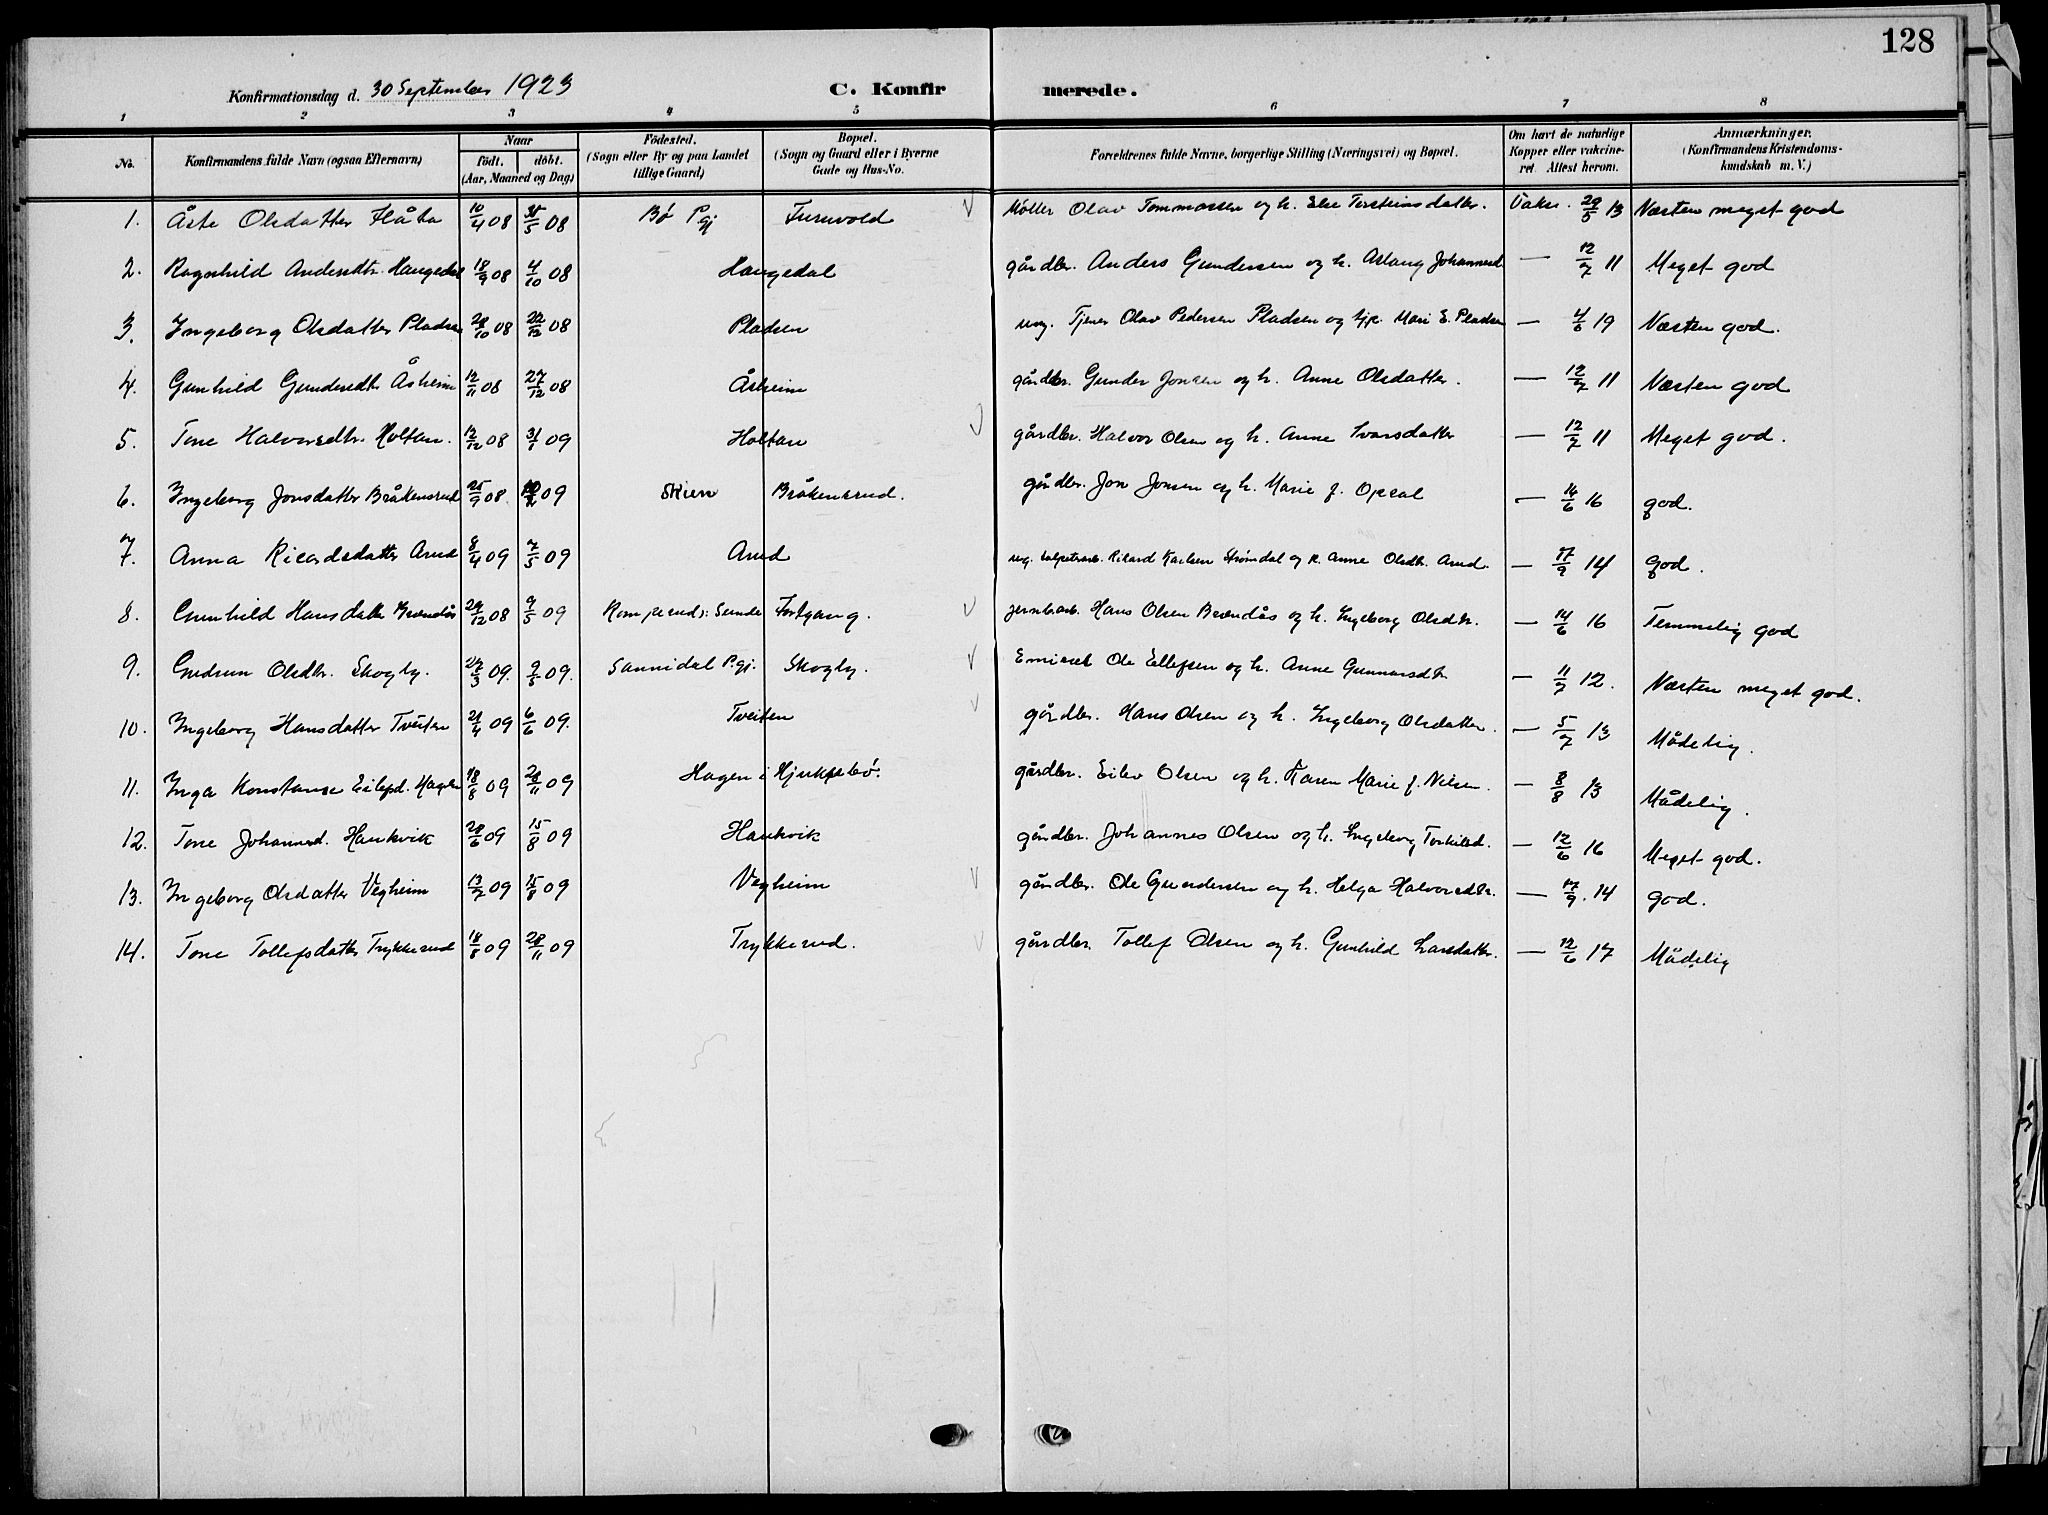 128
Konfirmationsdag d. 30 September 1923 C. Konfirmerede.
1 2 3 4 5 6 7 8
No. Konfirmandens fulde Navn (ogsaa Efternavn) Naar födt. döbt. (Aar, Maaned og Dag) Födested. (Sogn eller By og paa Landet tillige Gaard) Bopæl. (Sogn og Gaard eller i Byerne Gade og Hus-No. Forældrenes fulde Navne, borgerlige Stilling (Næringsvei) og Bopæl. Om havt de naturlige Kopper eller vakcineret. Attest herom. Anmærkninger. (Konfirmandens Kristendomskundskab m. V.)
1. Åste Olsdatter Håta 10/4 08 30/5 08 Bø Pgj Furuvold Møller Olav Tommassen og h. Else Torsteinsdatter. Vaks. 29/5 13 Næsten meget god
2. Ragnhild Andersdtr. Haugedal 18/9 08 4/10 08 Haugedal gårdbr. Anders Gundersen og h. Aslaug Johannesd. — 12/7 11 Meget god
3. Ingeborg Olsdatter Pladsen 28/10 08 22/12 08 Pladsen ung. Tjener Olav Pedersen Pladsen og pge. Mari E. Pladsen — 4/6 19 Næsten god.
4. Gunhild Gundersdtr Åsheim 12/11 08 27/12 08 Åsheim gårdbr. Gunder Jonsen og h. Anne Olsdatter. — 12/7 11 Næsten god
5. Tone Halvorsdtr. Holtan. 12/12 08 31/1 09 Holtan gårdbr. Halvor Olsen og h. Anne Ivarsdatter — 12/7 11 Meget god.
6. Ingeborg Jonsdatter Bråkensrud 25/9 08 09 Skien Bråkensrud. gårdbr. Jon Jonsen og h. Marie f. Opsal — 14/6 16 god.
7. Anna Ricardsdatter Arud 8/4 09 7/5 09 Arud ug. salpeterarb. Rikard Karlsen Strømdal og p. Anne Olsdtr. Arud — 17/9 14 god.
8. Gunhild Hansdatter Brændås 29/12 08 9/5 09 Komperud i Sunde Fortgang. jernbarb. Hans Olsen Brændås og h. Ingeborg Olsdtr. — 14/6 16 Temmelig god
9. Gudrun Olsdtr. Skogly. 27/3 09. 9/5 09. Sannidal Pgj. Skogly. Emisær Ole Ellefsen og h. Anne Gunnarsdtr — 11/7 12. Næsten meget god.
10. Ingeborg Hansdatter Tveiten 21/4 09 6/6 09. Tveiten gårdbr. Hans Olsen og h. Ingeborg Olsdatter. — 5/7 13 Mådelig.
11. Inga Konstanse Eilefsd. Hagen 18/8 09 28/11 09 Hagen i Hjuksebø. gårdbr. Eilev Olsen og h. Karen Marie f. Nilsen. — 8/8 13 Mådelig.
12. Tone Johannesd. Haukvik 28/6 09 15/8 09 Haukvik gårdbr. Johannes Olsen og h. Ingeborg Torkilsd. — 12/6 16 Meget god.
13. Ingeborg Olsdatter Vegheim 13/7 09 15/8 09 Vegheim gårdbr. Ole Gundersen og h. Helga Halvorsdtr. — 17/9. 14 god.
14. Tone Tollefsdatter Trykkerud 18/8 09 28/11 09 Trykkerud. gårdbr. Tollef Olsen og h. Gunhild Larsdatter. — 12/6 17 Mådelig